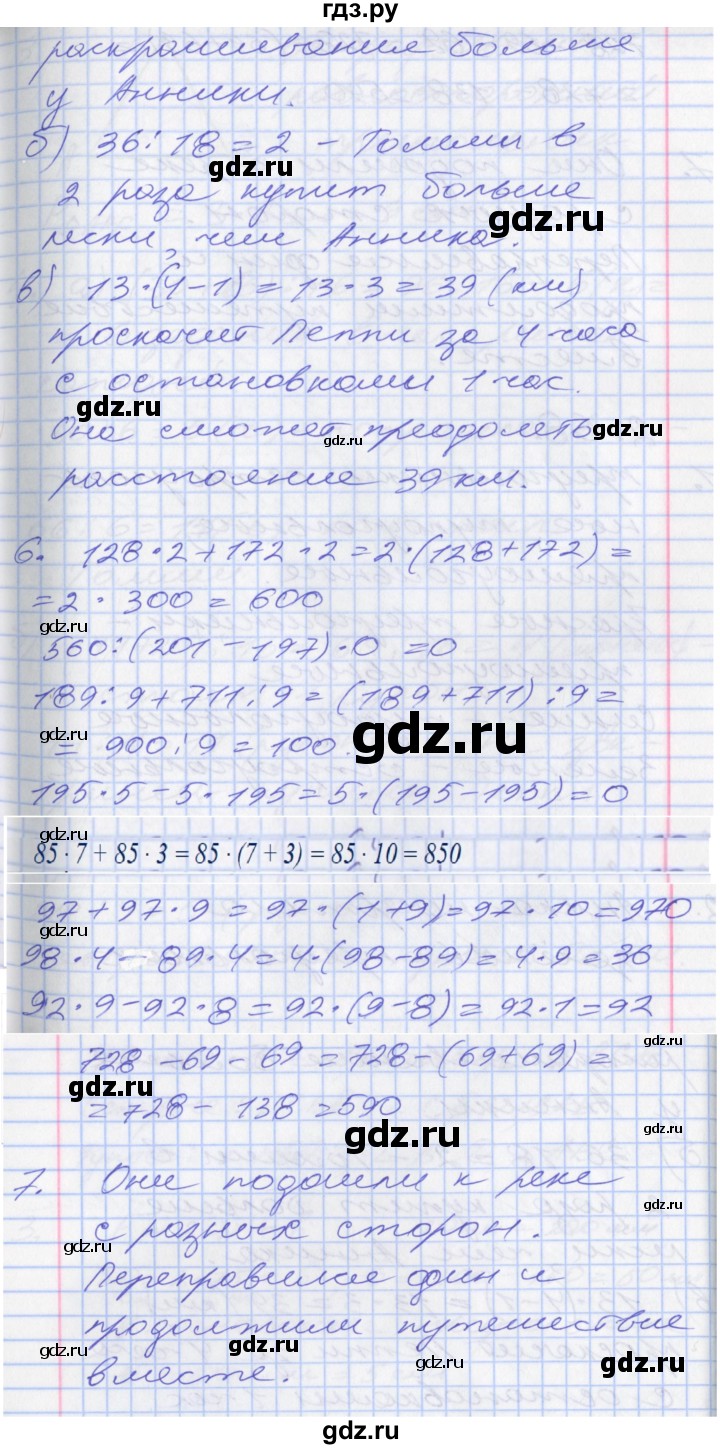 гдз.ру
раскрашивание больше
у Анники.
б) 36 : 18 = 2 – Томми в
gdz.ru
2 раза купит больше
gdz.ru
лески, чем Анника.
в) 13 · (4 – 1) = 13 · 3 = 39 (км)
проскачет Пеппи за 4 часа
с остановками 1 час.
gdz.ru
Она сможет преодолеть
gdz.ru
gdz.ru
расстояние 39 км.
6. 128 · 2 + 172 · 2 = 2 · (128 + 172) =
= 2 · 300 = 600
gdz.ru
560 : (201 – 197) · 0 = 0
189 : 9 + 711 : 9 = (189 + 711) : 9 =
gdz.ru
= 900 : 9 = 100.
gdz.ru
195 · 5 – 5 · 195 = 5 · (195 – 195) = 0
gdz.ru
85 · 7 + 85 · 3 = 85 · (7 + 3) = 85 · 10 = 850
97 + 97 · 9 = 97 · (1 + 9) = 97 · 10 = 970
gdz.ru
98 · 4 – 89 · 4 = 4 · (98 – 89) = 4 · 9 = 36
92 · 9 – 92 · 8 = 92 · (9 – 8) = 92 · 1 = 92
gdz.ru
gdz.ru
728 – 69 – 69 = 728 – (69 + 69) =
gdz.ru
= 728 – 138 = 590
gdz.ru
7. Они подошли к реке
с разных сторон.
gdz.ru
Переправился один и
gdz.ru
продолжили путешествие
gdz.ru
gdz.ru
вместе.
gdz.ru
gdz.ru
gdz.ru